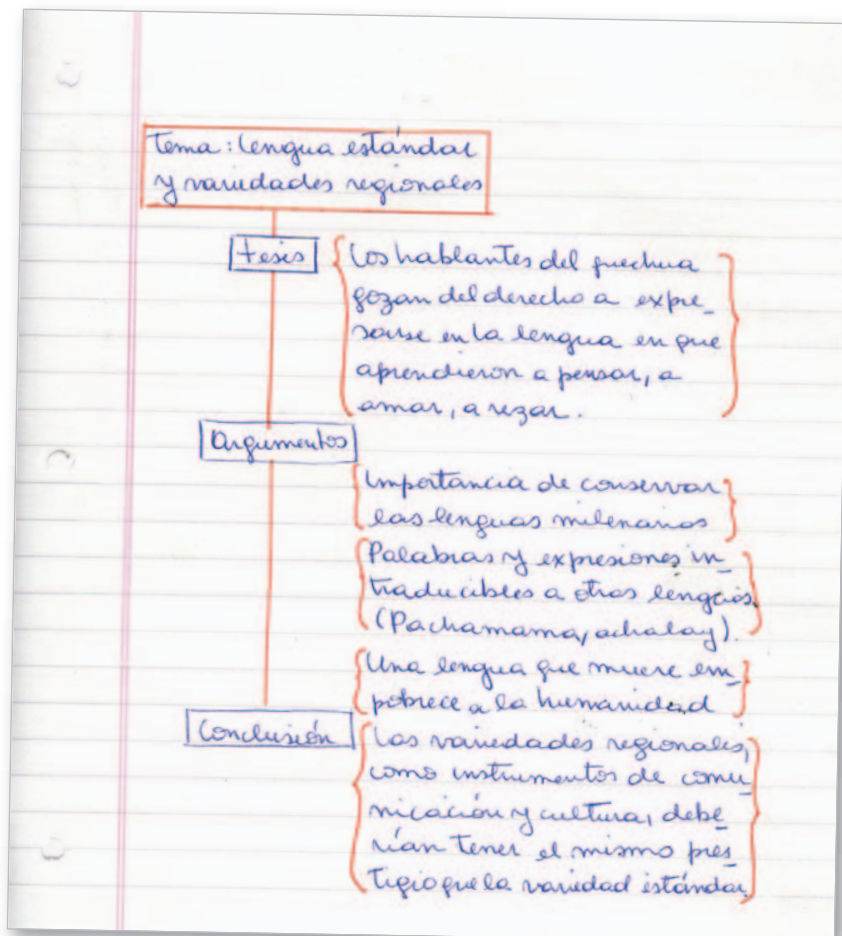 Tema: lengua estándar
y variedades regionales
tesis
Los hablantes del quechua
gozan del derecho a expre_
sarse en la lengua en que
aprendieron a pensar, a
amar, a rezar.
Argumentos
Importancia de conservar
las lenguas milenarias
Palabras y expresiones in_
traducibles a otras lenguas.
(Pachamama, achalay).
Una lengua que muere em_
pobrece a la humanidad
Conclusión
Las variedades regionales,
como instrumentos de comu_
nicación y cultura, debe_
rían tener el mismo pres_
tigio que la variedad estándar.